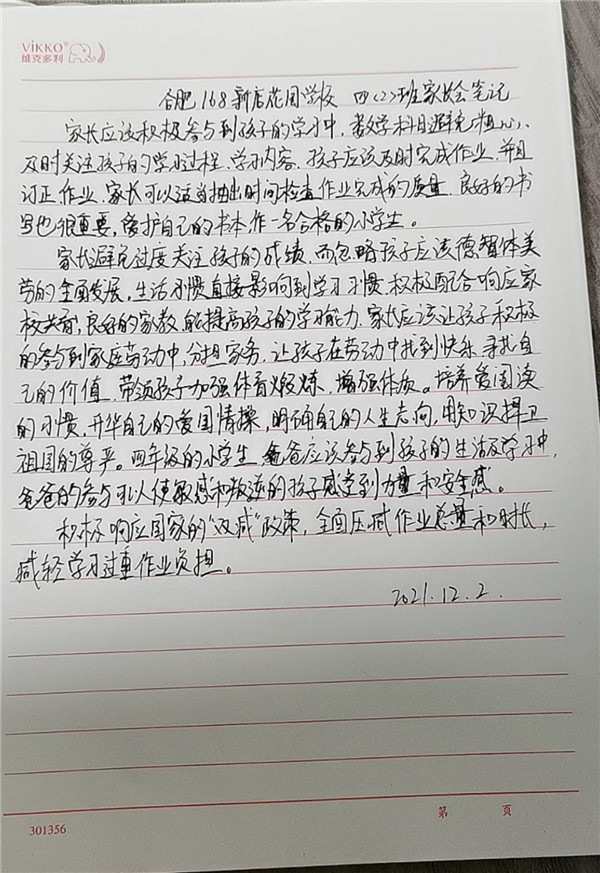 VIKKO®
维克多利
合肥168新店花园学校 四(2)班家长会笔记
家长应该积极参与到孩子的学习中,数学科目避免"粗心"、
及时关注孩子的学习过程、学习内容、孩子应该及时完成作业、并且
订正作业、家长可以适当抽出时间检查作业完成的质量、良好的书
写也很重要,爱护自己的书本,作一名合格的小学生。
家长避免过度关注孩子的成绩、而忽略孩子应该德智体美
劳的全面发展,生活习惯直接影响到学习习惯.积极配合响应家
校共育,良好的家教,能提高孩子的学习能力、家长应该让孩子积极
的参与到家庭劳动中,分担家务、让孩子在劳动中找到快乐、寻找自
己的价值、带领孩子加强体育煅炼、增强体质。培养爱国读
的习惯,升华自己的爱国情操,明确自己的人生志向,用知识捍卫
祖国的尊严。四年级的小学生,爸爸应该参与到孩子的生活及学习中,
爸爸的参与可以使敏感和叛逆的孩子感受到力量和安全感。
积极响应国家的"双减"政策,全面压减作业总量和时长,
减轻学习过重作业负担。
2021.12.2
301356
第 页